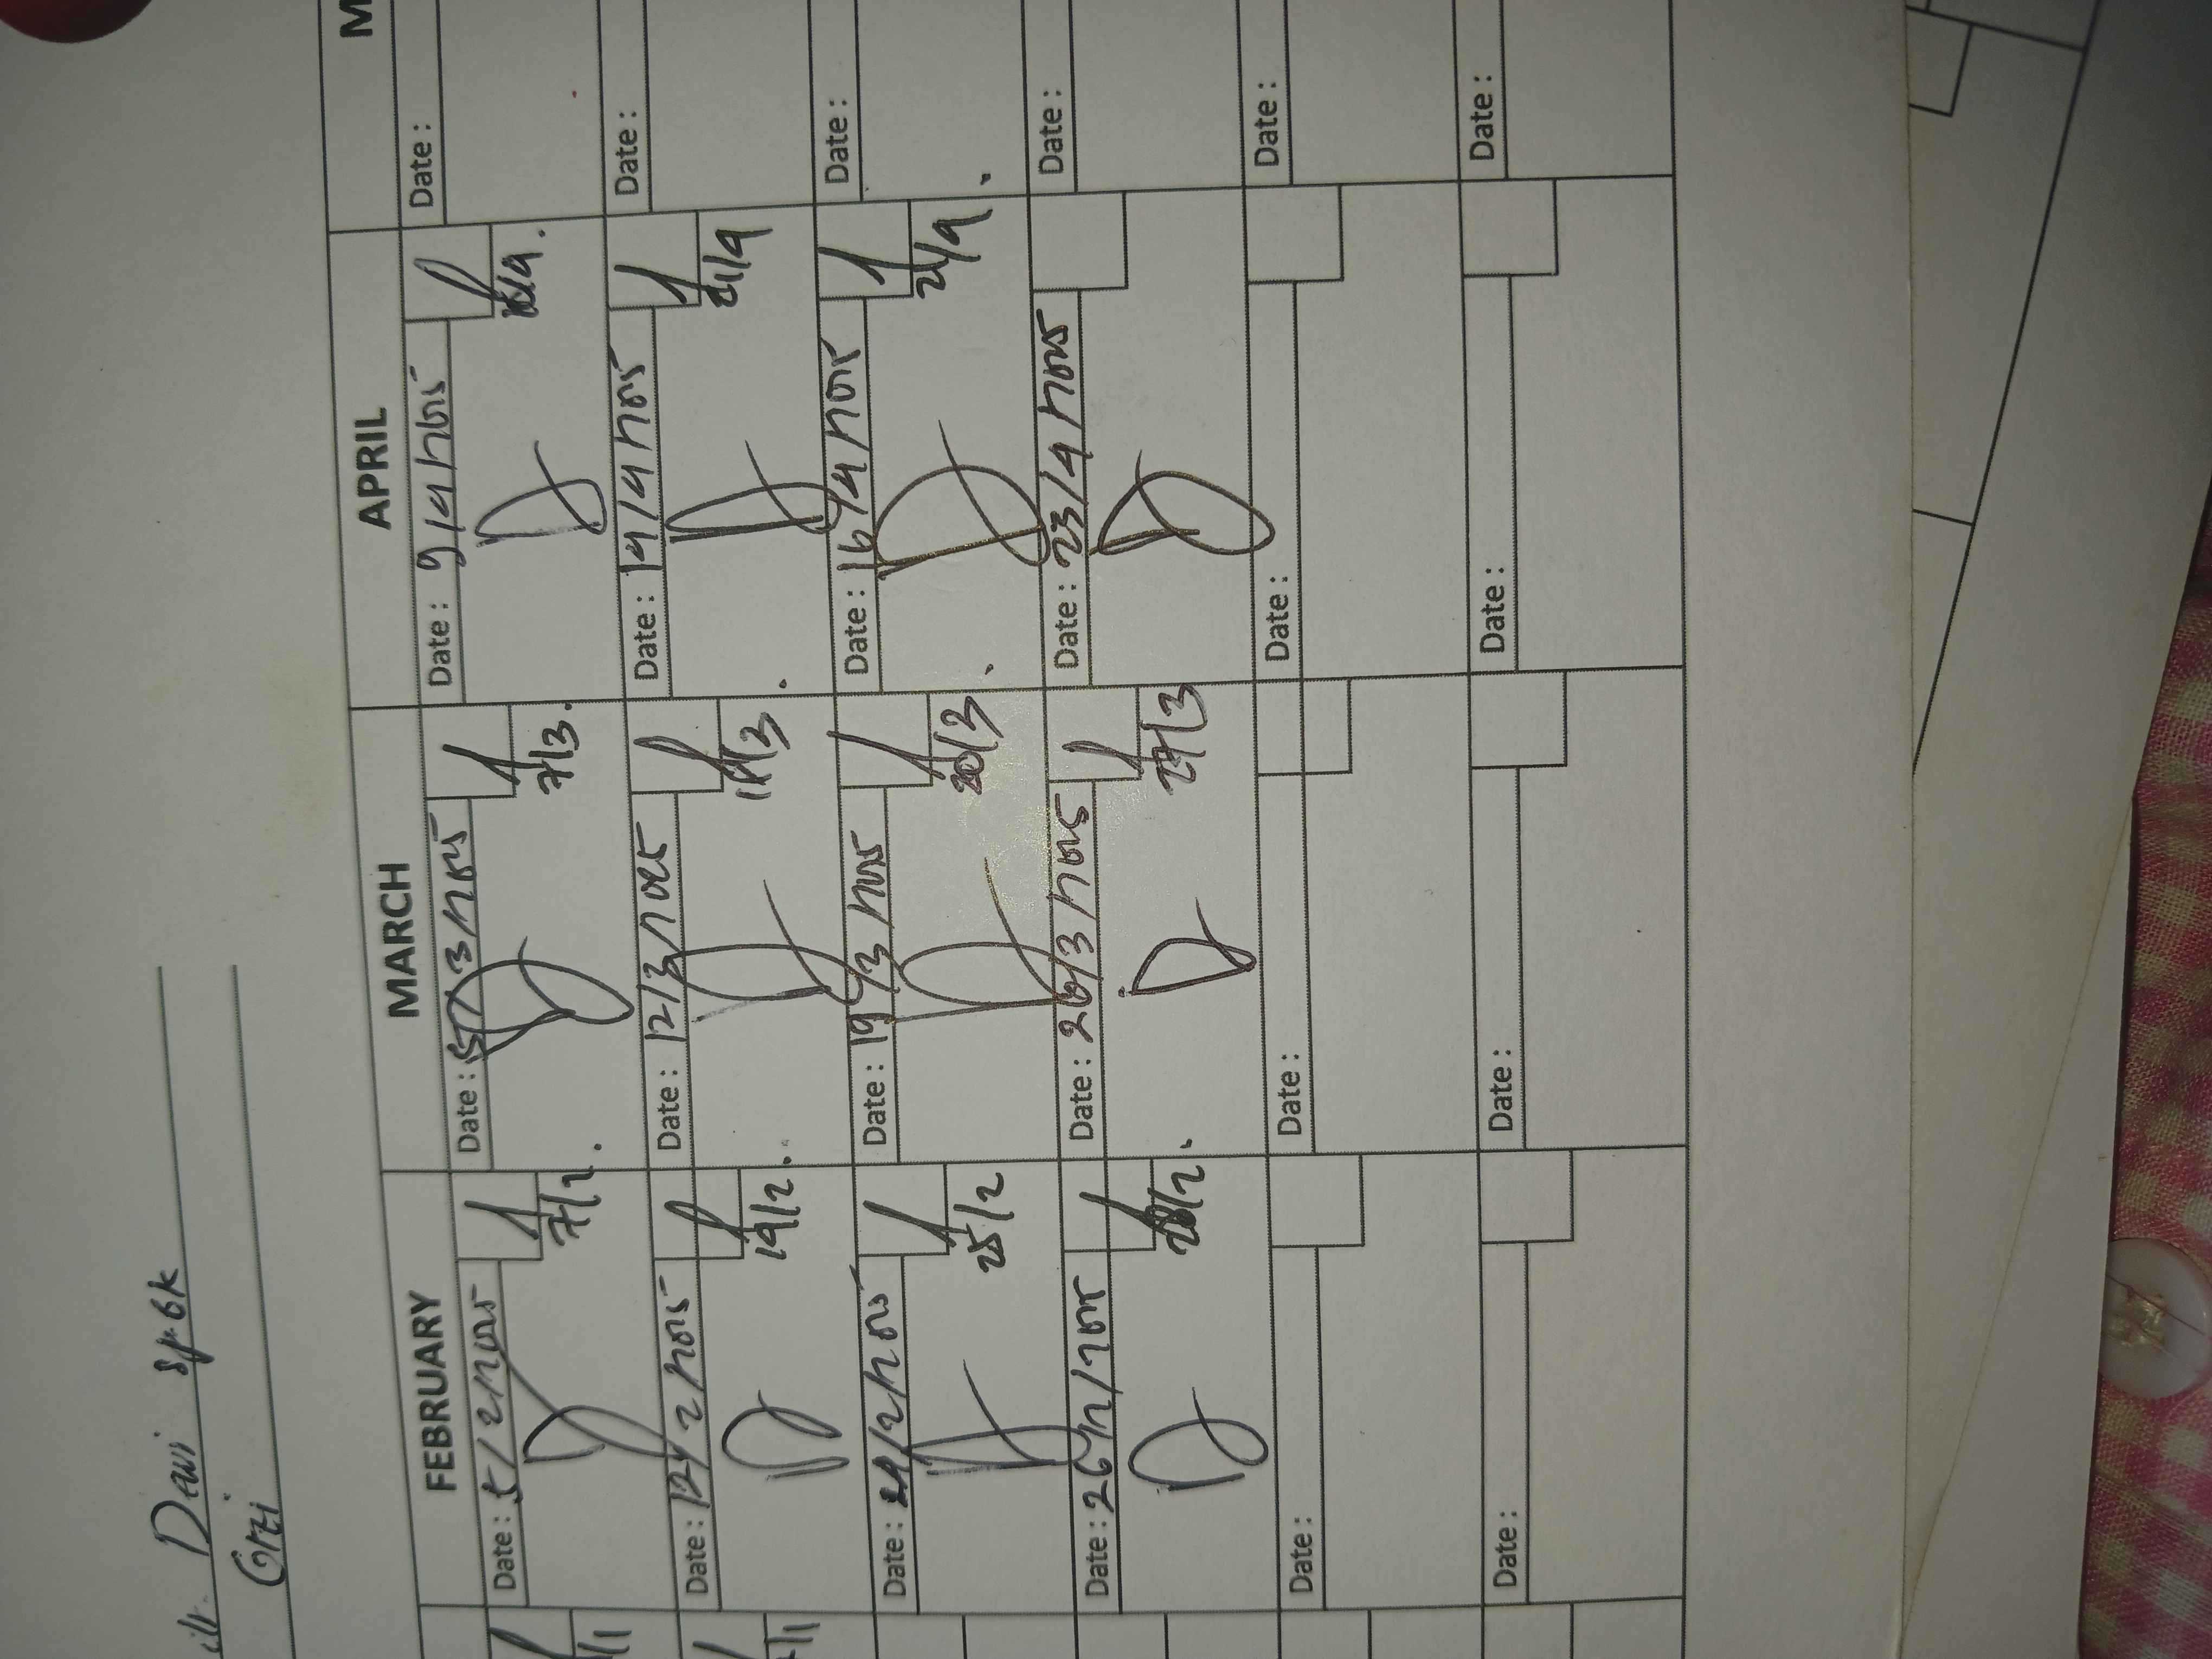 Dewi
FEBRUARY MARCH APRIL M
Date : 5/2/2025 Date : 5/3/2025 Date : 9/4/2025 Date :
7/2. 7/3.
Date : 12/2/2025 Date : 12/3/2025 Date : 14/4/2025 Date :
14/2. 21/4
Date : 24/2/2025 Date : 19/3/2025 Date : 16/4/2025 Date :
25/2 20/3 21/4
Date : 26/2/2025 Date : 26/3/2025 Date : 23/4/2025 Date :
28/2. 27/3
Date : Date : Date : Date :
Date : Date : Date : Date :